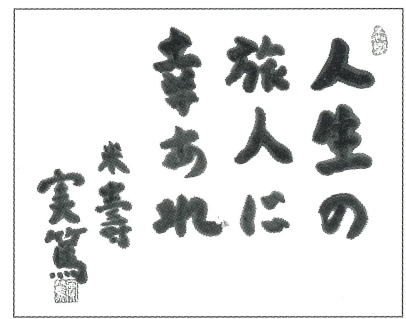 人生の
旅人に
幸あれ
米壽
実篤